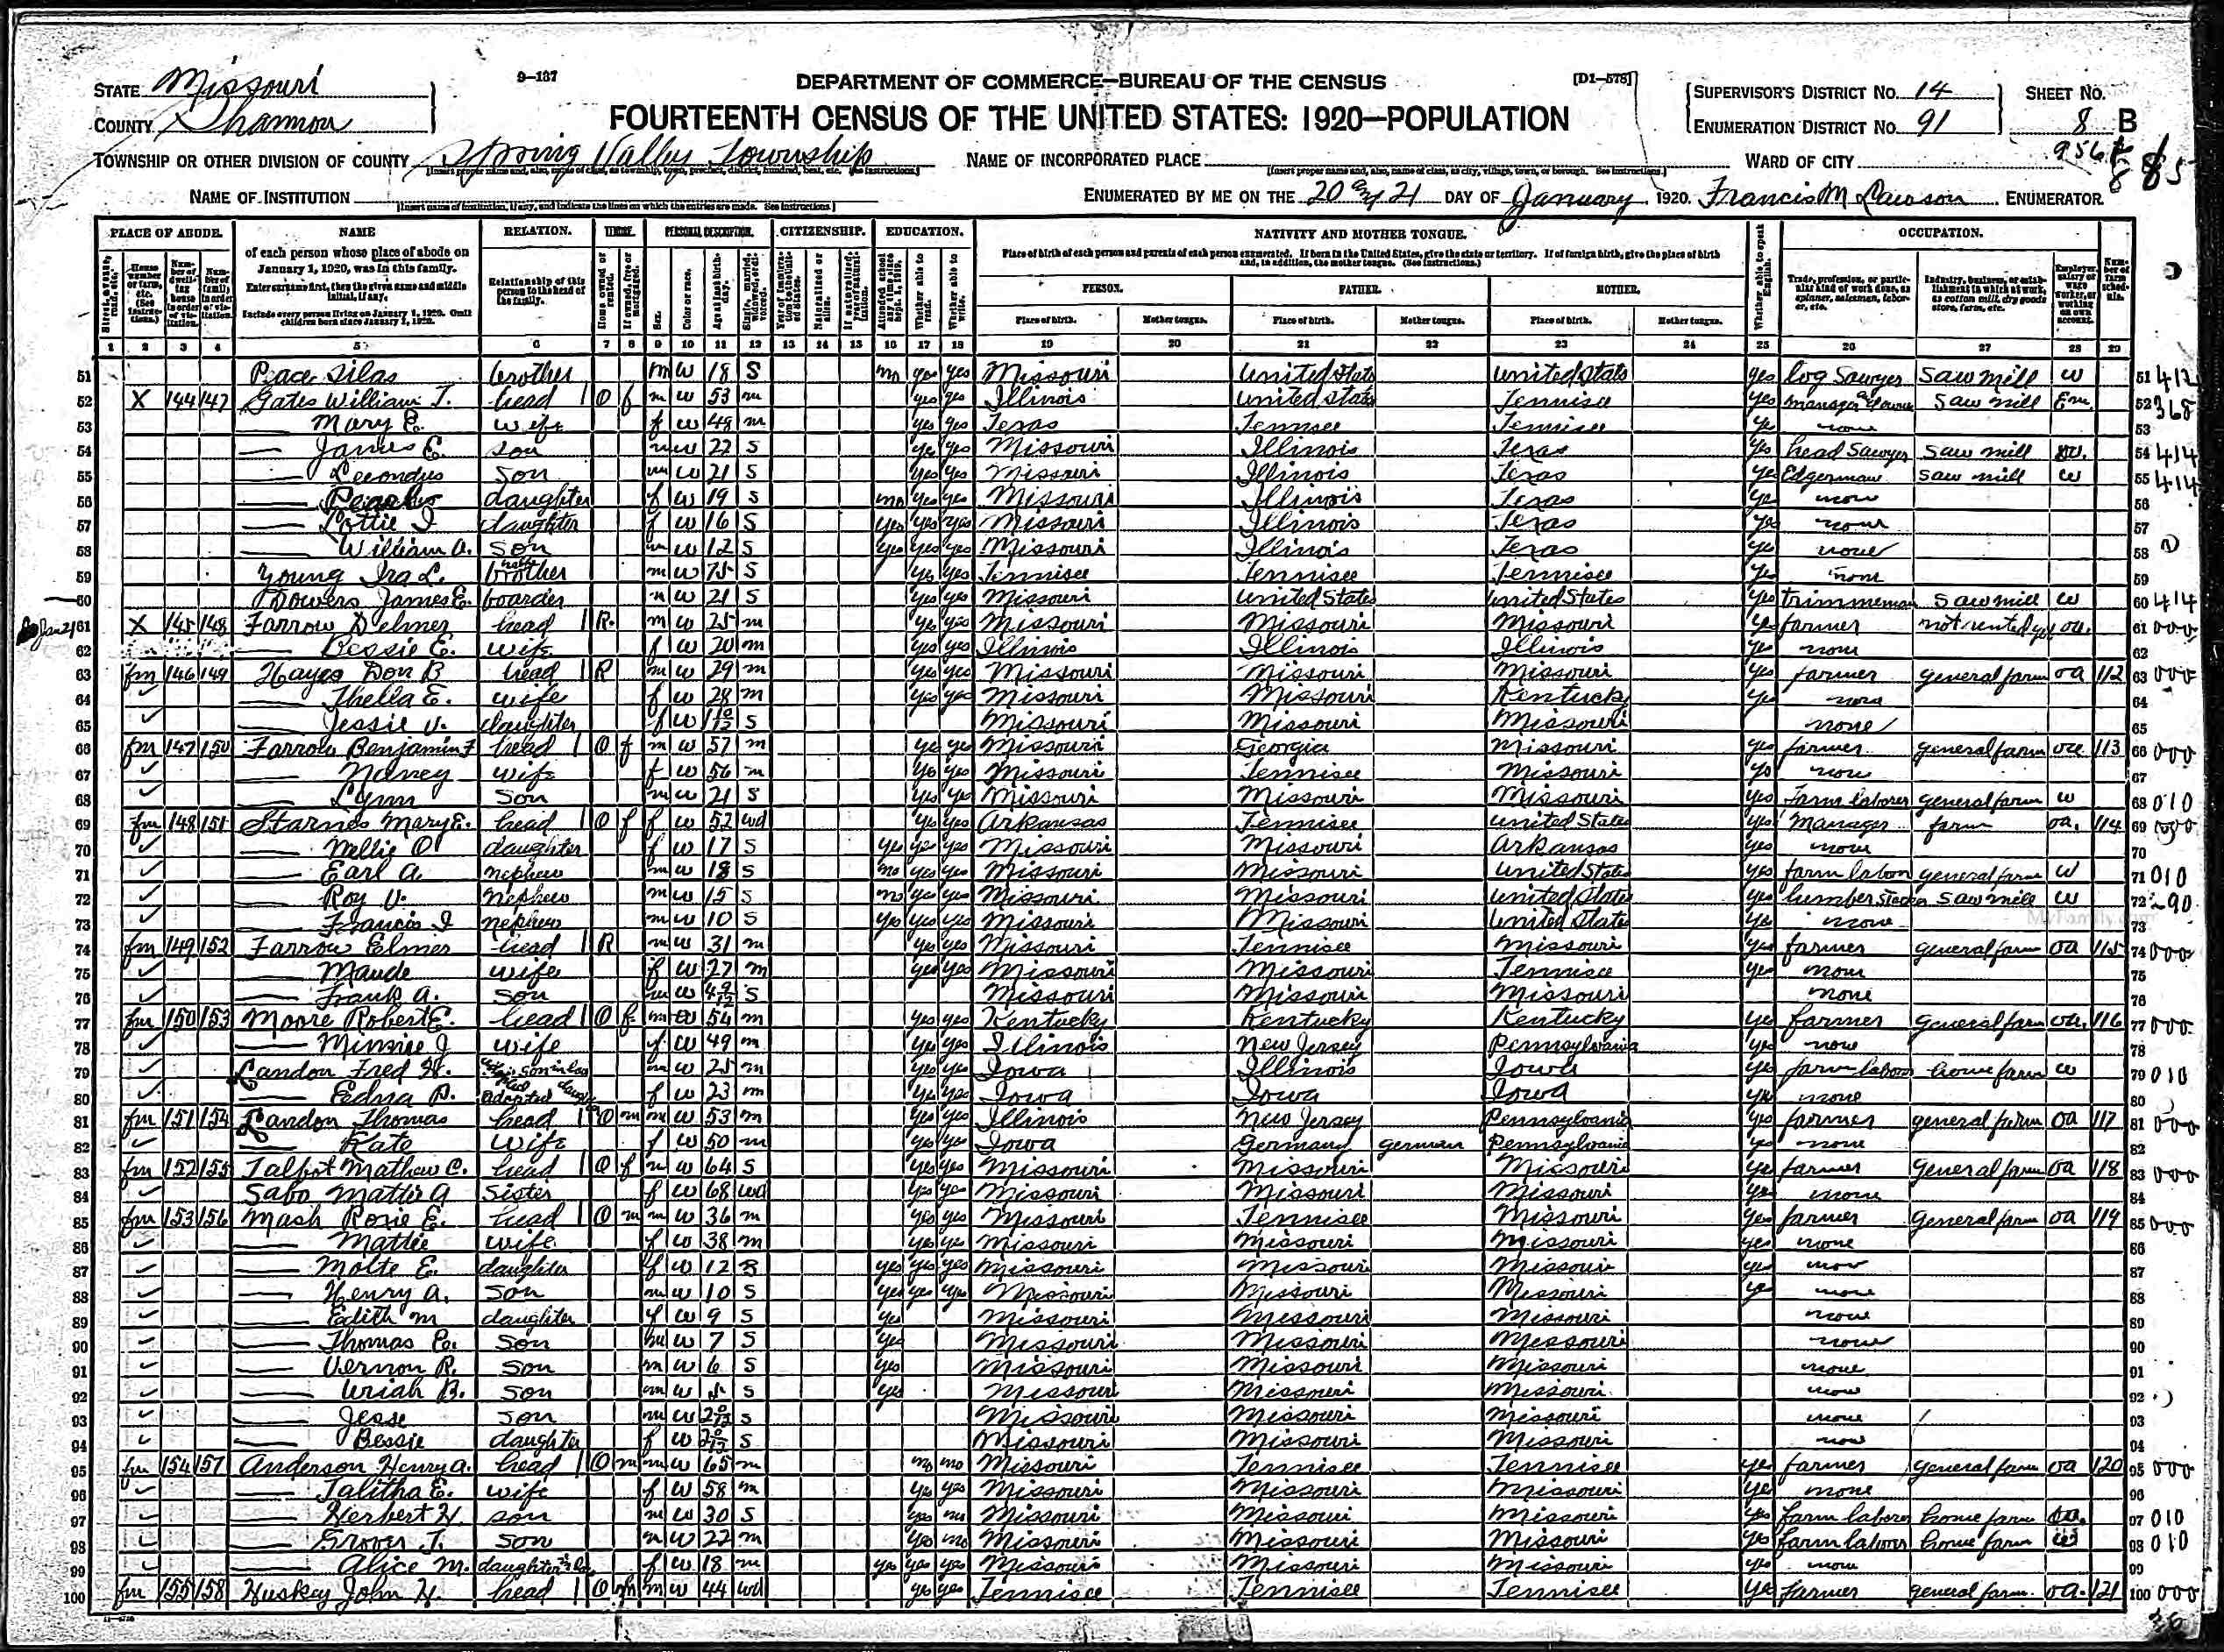 9-137
DEPARTMENT OF COMMERCE—BUREAU OF THE CENSUS
[D1-578]
STATE Missouri
COUNTY Shannon
FOURTEENTH CENSUS OF THE UNITED STATES: 1920—POPULATION
SUPERVISOR'S DISTRICT No. 14
ENUMERATION DISTRICT No. 91
SHEET No. 8 B
TOWNSHIP OR OTHER DIVISION OF COUNTY Spring Valley Township
NAME OF INCORPORATED PLACE
WARD OF CITY
NAME OF INSTITUTION
ENUMERATED BY ME ON THE 20 and 21 DAY OF January, 1920. Francis M Lawson ENUMERATOR
PLACE OF ABODE. NAME RELATION. TENURE. PERSONAL DESCRIPTION. CITIZENSHIP. EDUCATION. NATIVITY AND MOTHER TONGUE. OCCUPATION.
of each person whose place of abode on January 1, 1920, was in this family.
Enter surname first, then the given name and middle initial, if any.
Include every person living on January 1, 1920. Omit children born since January 1, 1920.
Relationship of this person to the head of the family.
Place of birth of each person and parents of each person enumerated. If born in the United States, give the state or territory. If of foreign birth, give the place of birth and, in addition, the mother tongue. (See Instructions.)
PERSON. FATHER. MOTHER.
Place of birth. Mother tongue. Place of birth. Mother tongue. Place of birth. Mother tongue.
1 2 3 4 5 6 7 8 9 10 11 12 13 14 15 16 17 18 19 20 21 22 23 24 25 26 27 28 29
51 Silas brother m W 18 S no yes yes Missouri United State United State yes log Sawyer Saw mill w 51 412
52 X 144 147 Gates William T. head 1 O f m W 53 m yes yes Illinois United State Tennisee yes manager Saw mill Em 52 365
53 Mary E. wife f W 48 m yes yes Texas Tennisee Tennisee yes none 53
54 James E. son m W 22 S yes yes Missouri Illinois Texas yes head Sawyer Saw mill w. 54 414
55 son m W 21 S yes yes Missouri Illinois Texas yes Edgerman Saw mill w 55 414
56 daughter f W 19 S no yes yes Missouri Illinois Texas yes none 56
57 Lottie I daughter f W 16 S yes yes yes Missouri Illinois Texas yes none 57
58 William A. son m W 12 S yes yes yes Missouri Illinois Texas yes none 58
59 Young Ira L. half brother m W 75 S yes yes Tennisee Tennisee Tennisee yes none 59
60 Bowers James E. boarder m W 21 S yes yes Missouri United States United States yes trimmeman Saw mill w 60 414
61 X 145 148 Farrow Delmer head 1 R. m W 25 m yes yes Missouri Missouri Missouri yes farmer not rented yet oa. 61 000
62 Bessie E. wife f W 20 m yes yes Illinois Illinois Illinois yes none 62
63 fm 146 149 Hayes Don B head 1 R m W 29 m yes yes Missouri Missouri Missouri yes farmer general farm oa 112 63 000
64 Thella E. wife f W 28 m yes yes Missouri Missouri Kentucky yes none 64
65 Jessie V. daughter f W 1 10/12 S Missouri Missouri Missouri none 65
66 fm 147 150 Farrow Benjamin F head 1 O f m W 57 m yes yes Missouri Georgia Missouri yes farmer general farm oa 113 66 000
67 Nancy wife f W 56 m yes yes Missouri Tennisee Missouri yes none 67
68 Lynn son m W 21 S yes yes Missouri Missouri Missouri yes Farm laborer general farm w 68 010
69 fm 148 151 Starnes Mary E. head 1 O f f W 52 wd yes yes Arkansas Tennisee United States yes Manager farm oa. 114 69
70 Nellie O daughter f W 17 S yes yes yes Missouri Missouri Arkansas yes none 70
71 Earl A. nephew m W 18 S no yes yes Missouri Missouri United States yes farm labor general farm w 71 010
72 Roy V. nephew m W 15 S no yes yes Missouri Missouri United States yes lumber Stacker Saw mill w 72 90
73 Francis I nephew m W 10 S yes yes yes Missouri Missouri United States yes none 73
74 fm 149 152 Farrow Elmer head 1 R m W 31 m yes yes Missouri Tennisee Missouri yes farmer general farm oa 115 74 000
75 Maude wife f W 27 m yes yes Missouri Missouri Tennisee yes none 75
76 Frank A. son m W 4 9/12 S Missouri Missouri Missouri none 76
77 fm 150 153 Moore Robert E. head 1 O f m W 54 m yes yes Kentucky Kentucky Kentucky yes farmer general farm oa. 116 77 000
78 Minnie J wife f W 49 m yes yes Illinois New Jersey Pennsylvania yes none 78
79 Landon Fred H. son in law m W 25 m yes yes Iowa Illinois Iowa yes farm labor home farm w 79 010
80 Edna D. adopted daughter f W 23 m yes yes Iowa Iowa Iowa yes none 80
81 fm 151 154 Landon Thomas head 1 O m m W 53 m yes yes Illinois New Jersey Pennsylvania yes farmer general farm oa 117 81 000
82 Kate wife f W 50 m yes yes Iowa Germany german Pennsylvania yes none 82
83 fm 152 155 Talbot Mathew C. head 1 O f m W 64 S yes yes Missouri Missouri Missouri yes farmer general farm oa 118 83 000
84 Sabo Mattie A sister f W 68 wd yes yes Missouri Missouri Missouri yes none 84
85 fm 153 156 Mash Rosie E. head 1 O m m W 36 m yes yes Missouri Tennisee Missouri yes farmer general farm oa 119 85 000
86 Mattie wife f W 38 m yes yes Missouri Missouri Missouri yes none 86
87 Molte E. daughter f W 12 S yes yes yes Missouri Missouri Missouri yes none 87
88 Henry A. son m W 10 S yes yes yes Missouri Missouri Missouri yes none 88
89 Edith M daughter f W 9 S yes Missouri Missouri Missouri none 89
90 Thomas son m W 7 S yes Missouri Missouri Missouri none 90
91 Vernon R. son m W 6 S yes Missouri Missouri Missouri none 91
92 Uriah B. son m W 5 S yes Missouri Missouri Missouri none 92
93 Jesse son m W S Missouri Missouri Missouri none 93
94 Bessie daughter f W S Missouri Missouri Missouri none 94
95 fm 154 157 Anderson Henry A. head 1 O m m W 65 m no no Missouri Tennisee Tennisee yes farmer general farm oa 120 95 000
96 Talitha E. wife f W 58 m yes yes Missouri Missouri Missouri yes none 96
97 Herbert H. son m W 30 S yes no Missouri Missouri Missouri yes farm laborer home farm 97 010
98 Grover T. son m W 22 m yes no Missouri Missouri Missouri yes farm laborer home farm w 98 010
99 Alice M. daughter in law f W 18 m yes yes yes Missouri Missouri Missouri yes none 99
100 fm 155 158 Huskey John H. head 1 O m m W 44 wd yes yes Tennisee Tennisee Tennisee yes farmer general farm. oa. 121 100 000